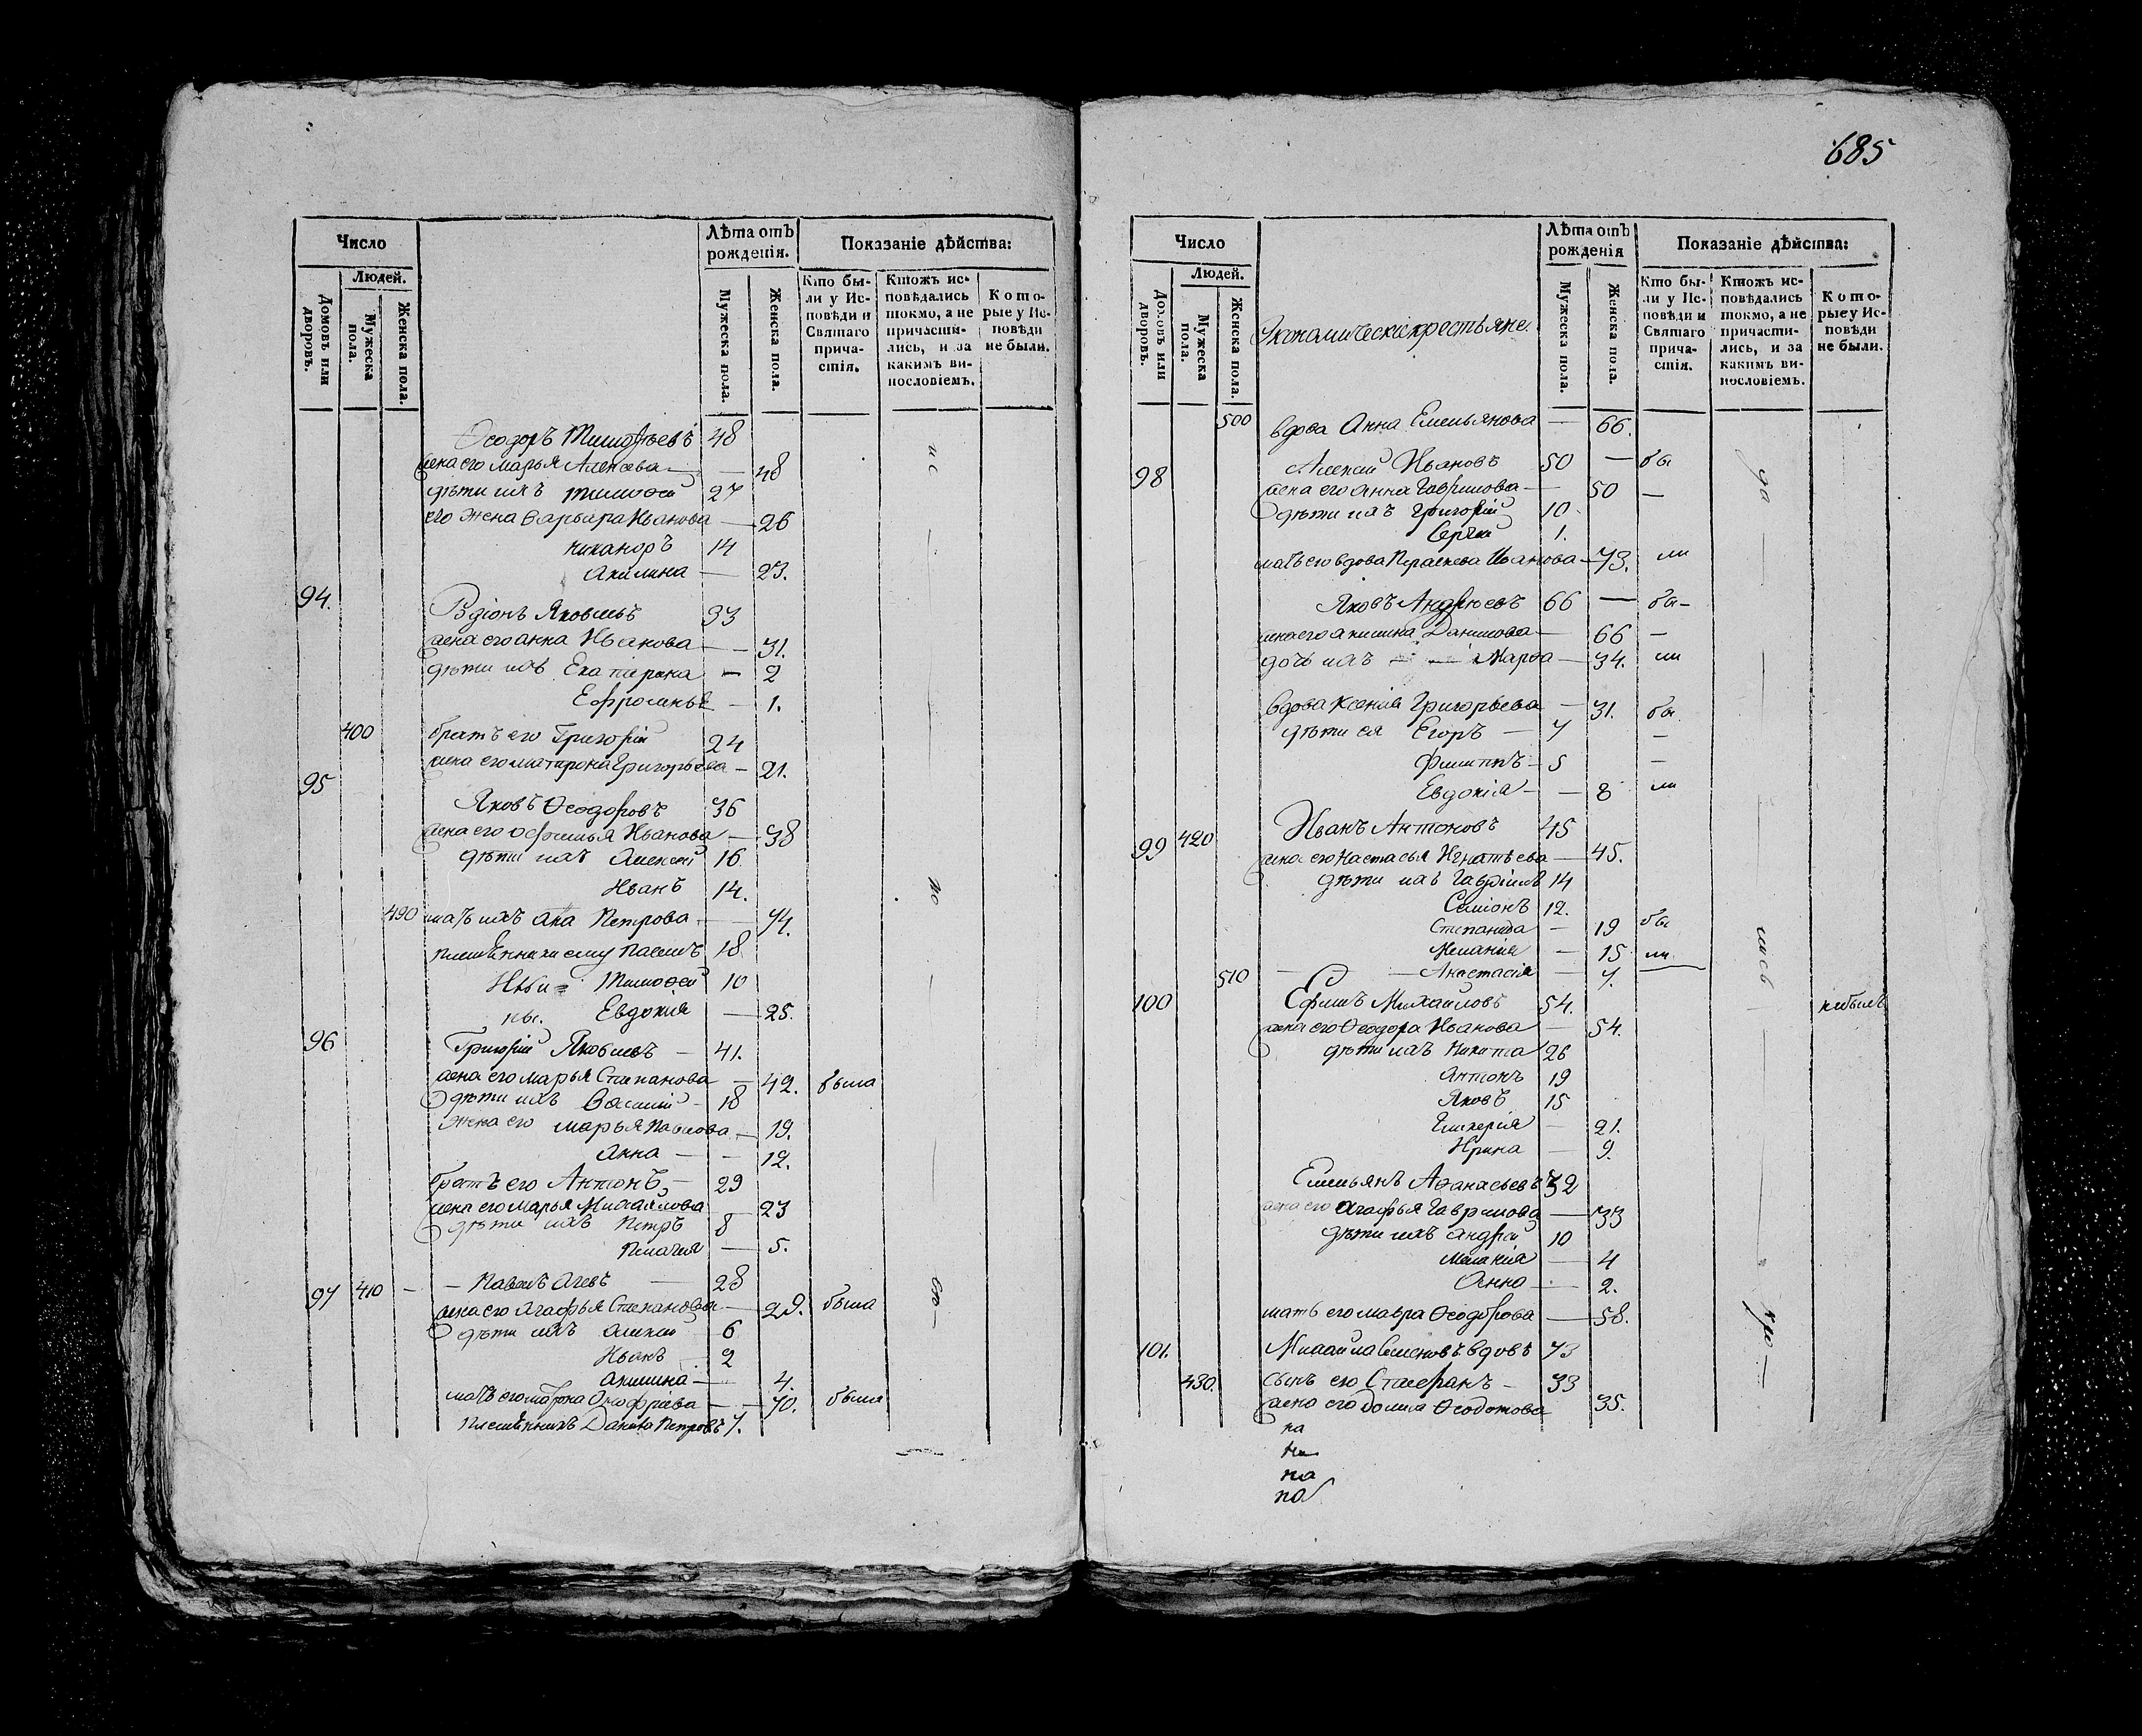 Число
Людей.
Домовъ или дворовъ.
Мужеска пола.
Женска пола.
Лѣта отъ рожденія.
Мужеска пола.
Женска пола.
Показаніе дѣйства:
Кто бы-
ли у Ис-
повѣди и
Святаго
прича-
стія.
Ктожъ ис-
повѣдались
токмо, а не
причасти-
лись, и за
какимъ ви-
нословіемъ.
Кото-
рые у Ис-
повѣди
не были.
Ѳеодоръ Тимофѣевъ 48
жена его Марья Алексѣева — 48
дѣти ихъ Тимоѳей 27
его жена Варвара Иванова — 26
Никаноръ 14
Акилина — 23.
94. Родіонъ Яковлевъ 33
жена его Анна Иванова — 31.
дѣти ихъ Екатерина — 2
Ефросинья — 1.
400 братъ его Григорій 24
жена его Матрона Григорьева — 21.
95 Яковъ Ѳеодоровъ 36
жена его Офимья Иванова — 38
дѣти ихъ Алексей 16
Иванъ 14.
490 мать ихъ Ана Петрова — 74.
племянники ему Павелъ 18
Тимоѳей 10
Евдокія — 25.
96 Григорій Яковлевъ — 41.
жена его Марья Степанова — 42. была
дѣти ихъ Василій 18
жена его Марья Павлова — 19.
Анна — 12.
братъ его Антонъ — 29
жена его Марья Михайлова — 23
дѣти ихъ Петръ 8
Пелагия — 5.
97 410 — Павелъ — 28
жена его Агафья Степанова — 29. была
дѣти ихъ Алексей 6
Иванъ 2
Акилина — 4.
мать его Онофріева — 70. была
племянникъ Данило Петровъ 7.
685
Число
Людей.
Домовъ или дворовъ.
Мужеска пола.
Женска пола.
Экономическіе крестьяне.
Лѣта отъ рожденія
Мужеска пола.
Женска пола.
Показаніе дѣйства:
Кто бы-
ли у Ис-
повѣди и
Святаго
прича-
стія.
Ктожъ ис-
повѣдались
токмо, а не
причасти-
лись, и за
какимъ ви-
нословіемъ.
Кото-
рые у Ис-
повѣди
не были.
500 вдова Анна Емельянова — 66.
98 Алексей Ивановъ 50 — бы
жена его Анна Гаврилова — 50 —
дѣти ихъ Григорій 10
Сергей 1.
мать его вдова Параскева Иванова — 73. ли
Яковъ Андреевъ 66 — бы-
жена его Акилина Данилова — 66 —
дочь ихъ Марѳа — 34. ли
вдова Ксенія Григорьева — 31. бы
дѣти ея Егоръ — 7 —
Филиппъ — 5 —
Евдокія — 8 ли
99 420 Иванъ Антоновъ 45
жена его Настасья Игнатьева — 45.
дѣти ихъ Гавріилъ 14
Симіонъ 12.
Степанида — 19 бы
Меланія — 15 ли
510 Анастасія — 7.
100 Ефимъ Михаиловъ 54. небылъ
жена его Ѳеодора Иванова — 54.
дѣти ихъ Никита 26
Антонъ 19
Яковъ 15
Гликерія — 21.
Ирина — 9.
Емельянъ Аѳанасьевъ 32
жена его Агафья Гаврилова — 33
дѣти ихъ Андрей 10
Меланія — 4
Анна — 2.
мать его Мавра Ѳеодорова — 58.
101. Михайла Семеновъ вдовъ 73
430. сынъ его Стаефанъ — 33
жена его Домна Ѳеодотова 35.
на
на
на
на